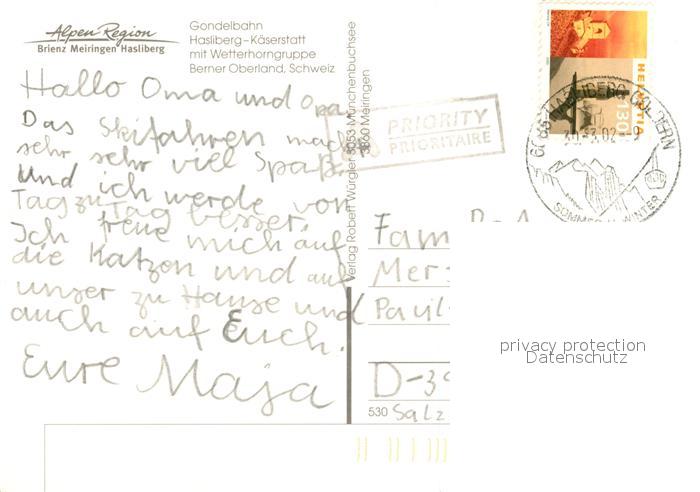 Alpen Region
Brienz Meiringen Hasliberg
Gondelbahn
Hasliberg–Käserstatt
mit Wetterhorngruppe
Berner Oberland, Schweiz
Hallo Oma und Opa,
Das Skifahren macht
sehr sehr viel Spaß.
Und ich werde von
Tag zu Tag besser.
Ich freue mich auf
die Katzen und auf
unser zu Hause und
auch auf Euch.
Eure Maja
Verlag Robert Würgler 3053 Münchenbuchsee
3860 Meiringen
PRIORITY
PRIORITAIRE
HELVETIA
130
HASLIBERG GOLDERN
SOMMER WINTER
Fam
Mer
Pavil
D-39
530 Salz
privacy protection
Datenschutz